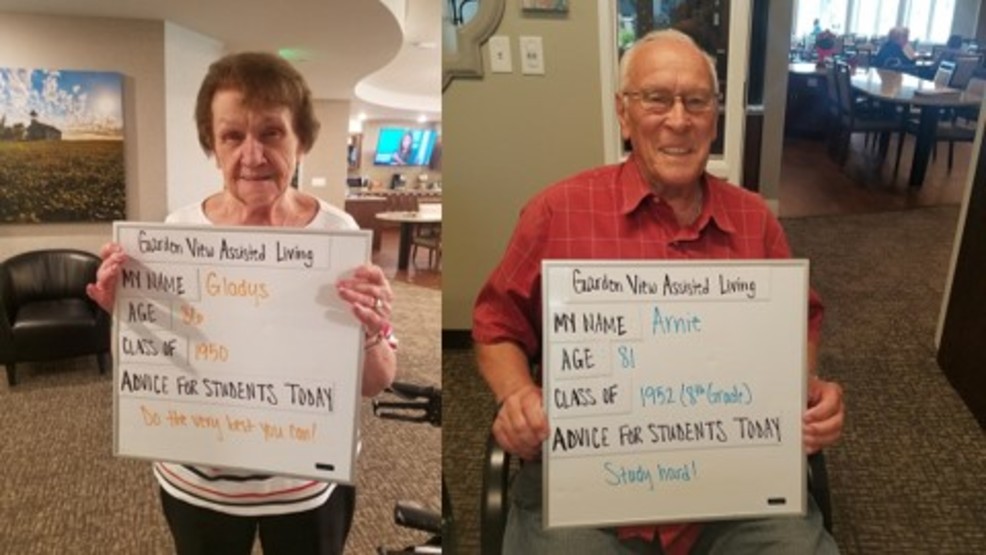 Garden View Assisted Living
MY NAME Gladys
AGE
CLASS OF 1950
ADVICE FOR STUDENTS TODAY
Do the very best you can!
Garden View Assisted Living
MY NAME Arnie
AGE 81
CLASS OF 1952 (8th Grade)
ADVICE FOR STUDENTS TODAY
Study hard!